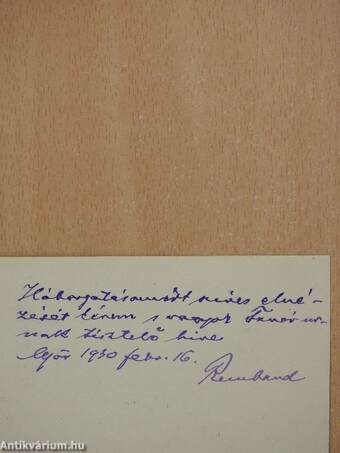 Háborgatásomért szíves elné-
zését kérem s vagyok Tanár úr-
nak tisztelő híve
Győr 1930 febr. 16.
Antikvárium.hu